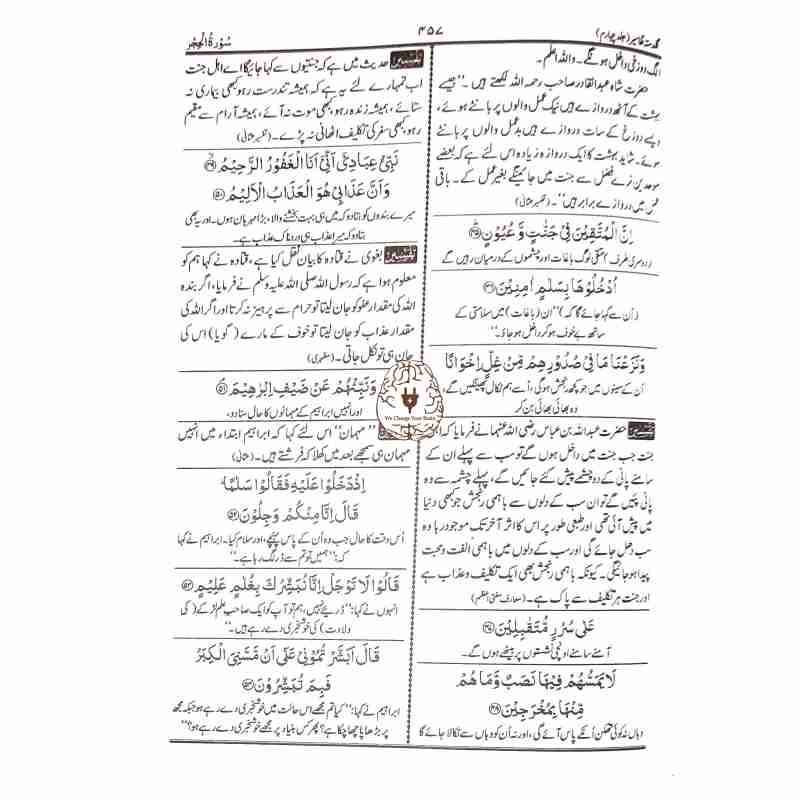 گلدستہ تفاسیر (جلد چہارم)
۴۵۷
سُوْرَةُ الْحِجْر
الگ دوزخی داخل ہونگے۔ واللہ اعلم۔
حضرت شاہ عبدالقادر صاحب رحمہ اللہ لکھتے ہیں۔ "جیسے
بہشت کے آٹھ دروازے ہیں نیک عمل والوں پر بانٹے ہوئے،
ایسے دوزخ کے سات دروازے ہیں بد عمل والوں پر بانٹے
ہوئے۔ شاید بہشت کا ایک دروازہ زیادہ اس لئے ہے کہ بعضے
موحدین نرے فضل سے جنت میں جائینگے بغیر عمل کے۔ باقی
عمل میں دروازے برابر ہیں"۔ (تفسیر عثمانی)
اِنَّ الْمُتَّقِيْنَ فِيْ جَنّٰتٍ وَّعُيُوْنٍ ﴿۴۵﴾
(دوسری طرف) متقی لوگ باغات اور چشموں کے درمیان رہیں گے
اُدْخُلُوْهَا بِسَلٰمٍ اٰمِنِيْنَ ﴿۴۶﴾
(اُن سے کہا جائے گا کہ) "ان (باغات) میں سلامتی کے
ساتھ بے خوف ہو کر داخل ہو جاؤ۔"
وَنَزَعْنَا مَا فِيْ صُدُوْرِهِمْ مِّنْ غِلٍّ اِخْوَانًا
اُن کے سینوں میں جو کچھ رنجش ہوگی، اُسے ہم نکال پھینکیں گے،
وہ بھائی بھائی بن کر
تفسیر حضرت عبداللہ بن عباس رضی اللہ عنہما نے فرمایا کہ اہل
جنت جب جنت میں داخل ہوں گے تو سب سے پہلے ان کے
سامنے پانی کے دو چشمے پیش کئے جائیں گے، پہلے چشمہ سے وہ
پانی پئیں گے تو ان سب کے دلوں سے باہمی رنجش جو کبھی دنیا
میں پیش آئی تھی اور طبعی طور پر اس کا اثر آخر تک موجود رہا وہ
سب دھل جائے گی اور سب کے دلوں میں باہمی اُلفت و محبت
پیدا ہو جائیگی۔ کیونکہ باہمی رنجش بھی ایک تکلیف و عذاب ہے
اور جنت ہر تکلیف سے پاک ہے۔ (معارف مفتی اعظم)
عَلٰى سُرُرٍ مُّتَقٰبِلِيْنَ ﴿۴۷﴾
آمنے سامنے اونچی نشستوں پر بیٹھے ہوں گے۔
لَا يَمَسُّهُمْ فِيْهَا نَصَبٌ وَّمَا هُمْ
مِّنْهَا بِمُخْرَجِيْنَ ﴿۴۸﴾
وہاں نہ کوئی تھکن اُنکے پاس آئے گی، اور نہ اُن کو وہاں سے نکالا جائے گا
تفسیر حدیث میں ہے کہ جنتیوں سے کہا جائیگا اے اہل جنت
اب تمہارے لئے یہ ہے کہ ہمیشہ تندرست رہو کبھی بیماری نہ
ستائے، ہمیشہ زندہ رہو کبھی موت نہ آئے، ہمیشہ آرام سے مقیم
رہو کبھی سفر کی تکلیف اٹھانی نہ پڑے۔ (تفسیر عثمانی)
نَبِّئْ عِبَادِيْٓ اَنِّيْٓ اَنَا الْغَفُوْرُ الرَّحِيْمُ ﴿۴۹﴾
وَاَنَّ عَذَابِيْ هُوَ الْعَذَابُ الْاَلِيْمُ ﴿۵۰﴾
میرے بندوں کو بتا دو کہ میں ہی بہت بخشنے والا، بڑا مہربان ہوں۔ اور یہ بھی
بتا دو کہ میرا عذاب ہی دردناک عذاب ہے۔
تفسیر بغوی نے قتادہ کا بیان نقل کیا ہے، قتادہ نے کہا ہم کو
معلوم ہوا ہے کہ رسول اللہ صلی اللہ علیہ وسلم نے فرمایا، اگر بندہ
اللہ کی مقدار عفو کو جان لیتا تو حرام سے پرہیز نہ کرتا اور اگر اللہ کی
مقدار عذاب کو جان لیتا تو خوف کے مارے (گویا) اس کی
جان ہی تو نکل جاتی۔ (مظہری)
وَنَبِّئْهُمْ عَنْ ضَيْفِ اِبْرٰهِيْمَ ﴿۵۱﴾
اور انہیں ابراہیم کے مہمانوں کا حال سنا دو،
"مہمان" اس لئے کہا کہ ابراہیم ابتداء میں انہیں
مہمان ہی سمجھے بعد میں کھلا کہ فرشتے ہیں۔ (عثمانی)
We Change Your Brain
اِذْ دَخَلُوْا عَلَيْهِ فَقَالُوْا سَلٰمًا
قَالَ اِنَّا مِنْكُمْ وَجِلُوْنَ ﴿۵۲﴾
اُس وقت کا حال جب وہ اُن کے پاس پہنچے، اور سلام کیا۔ ابراہیم نے کہا
کہ: "ہمیں تو تم سے ڈر لگ رہا ہے۔"
قَالُوْا لَا تَوْجَلْ اِنَّا نُبَشِّرُكَ بِغُلٰمٍ عَلِيْمٍ ﴿۵۳﴾
انہوں نے کہا: "ڈریئے نہیں، ہم تو آپ کو ایک صاحبِ علم لڑکے (کی
ولادت) کی خوشخبری دے رہے ہیں۔"
قَالَ اَبَشَّرْتُمُوْنِيْ عَلٰٓى اَنْ مَّسَّنِيَ الْكِبَرُ
فَبِمَ تُبَشِّرُوْنَ ﴿۵۴﴾
ابراہیم نے کہا: "کیا تم مجھے اس حالت میں خوشخبری دے رہے ہو جبکہ مجھ
پر بڑھاپا چھا چکا ہے؟ پھر کس بنیاد پر مجھے خوشخبری دے رہے ہو؟"